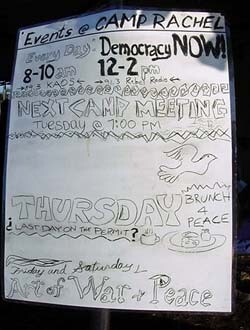 Events @ CAMP RACHEL
Every Day: Democracy NOW!
8-10 am 12-2 pm
89.3 KAOS
NEXT CAMP MEETING
Tuesday @ 7:00 PM
THURSDAY
¿LAST DAY ON THE PERMIT?
BRUNCH
4
PEACE
Friday and Saturday
Art of War + Peace